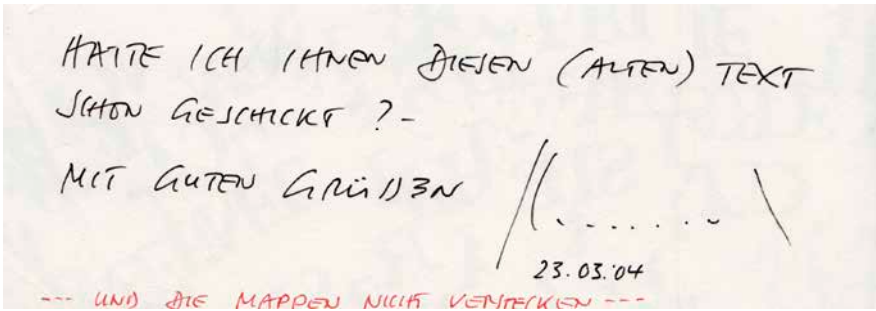 HATTE ICH IHNEN DIESEN (ALTEN) TEXT
SCHON GESCHICKT ? -
MIT GUTEN GRÜSSEN
23.03.'04
--- UND DIE MAPPEN NICHT VERSTECKEN ---